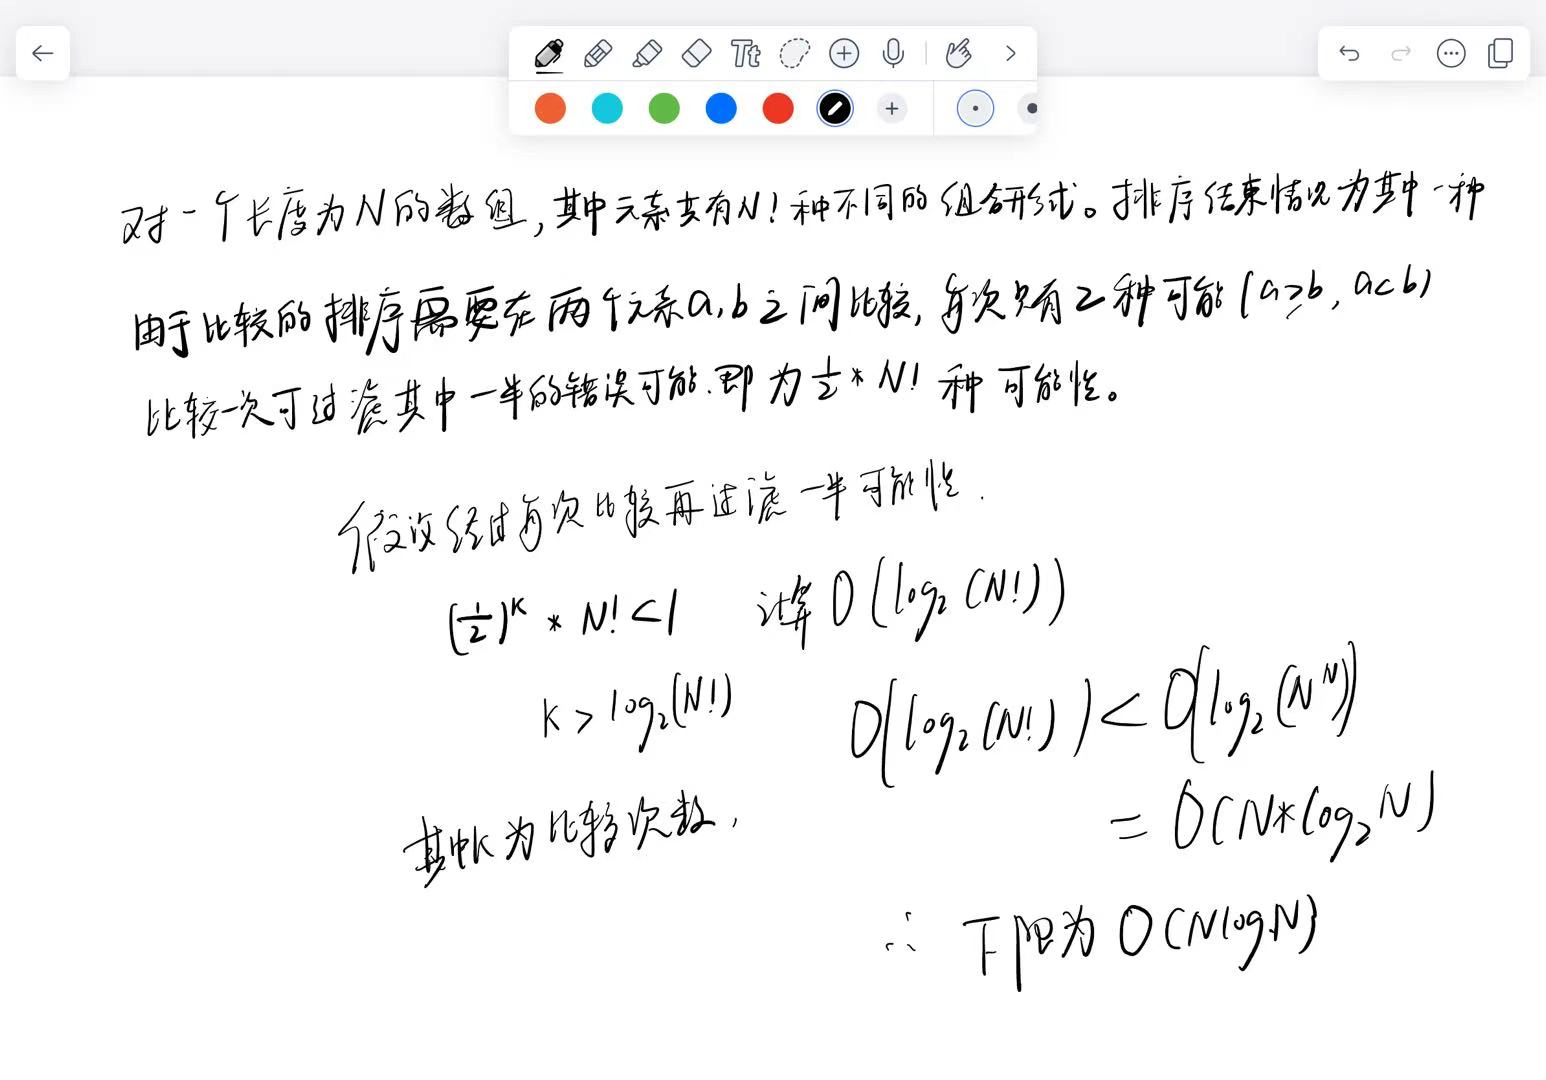 Tt
对一个长度为N的数组,其中元素共有N!种不同的组合形式。排序结束情况为其中一种
由于比较的排序需要在两个元素a,b之间比较,每次只有2种可能(a≥b, a<b)
比较一次可过滤其中一半的错误可能.即为½*N!种可能性。
假设经过每次比较再过滤一半可能性.
(1/2)^K * N! < 1 计算O(log₂(N!))
K > log₂(N!) O(log₂(N!)) < O(log₂(N^N))
= O(N*log₂N)
其中K为比较次数,
∴ 下限为O(NlogN)